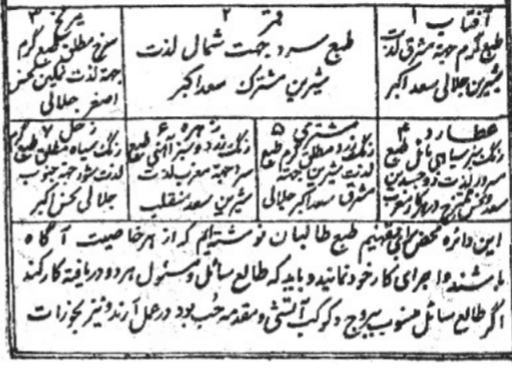 آفتاب ۱
طبع گرم جهة مشرق لذت
شیرین جلالی سعد اکبر
قمر ۲
طبع سرد جهت شمال لذت
شیرین مشترک سعد اکبر
مریخ ۳
سرخ مطلق طبع گرم
جهة لذت نمکین نحس
اصغر جلالی
عطارد ۴
رنگ سبز سیاهی مائل طبع
سرد لذت ذوجسدین
سعد و نحس ممتزج
مشتری ۵
رنگ زرد مطلق گرم طبع
لذت شیرین جهة
مشرق سعد اکبر جلالی
زهره ۶
رنگ زرد و سبز آبی طبع
سرد جهة مغرب لذت
شیرین سعد منقلب
زحل ۷
رنگ سیاه مطلق طبع گرم
لذت شور جهة جنوب
جلالی نحس اکبر
این دائره محض برای تفهیم طبع طالبان نوشته‌ایم که از هر خاصیت آگاه
باشند و اجرای کار خود نمایند و باید که طالع سائل و مسئول هر دو دریافته کار کند
اگر طالع سائل منسوب ببروج و کوکب آتشی و مقدمه حُب بود در عمل آرند و نیز بجوزات